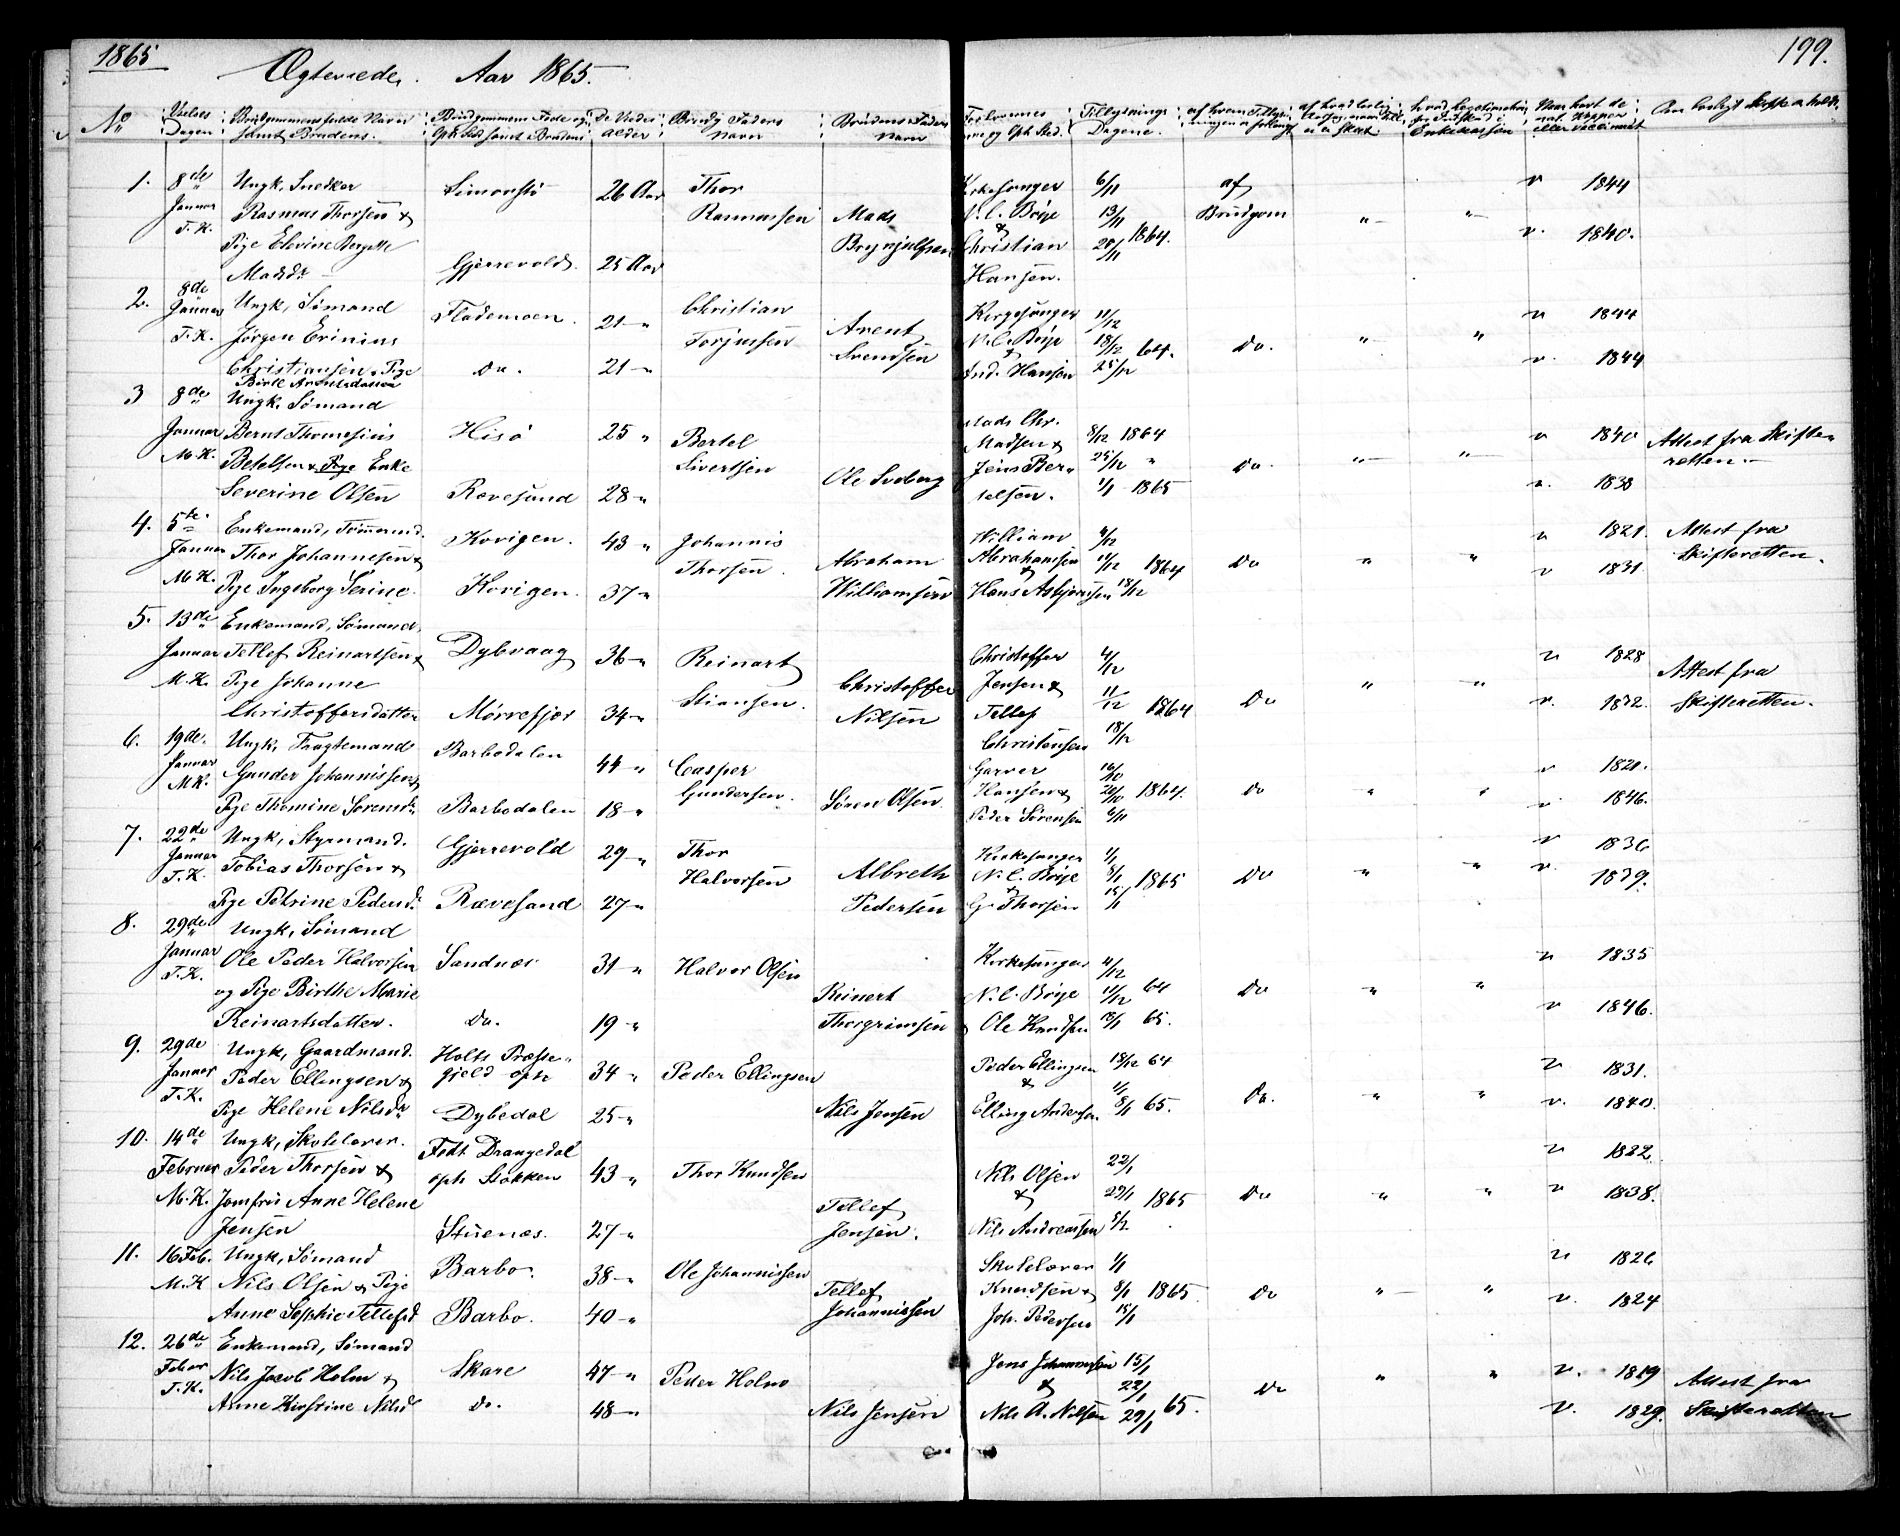 1865
199.
Ægteviede. Aar 1865.
No
Vielses Dagen
Brudgommens fulde Navn samt Brudens
Brudgommens Føde og Oph. Sted samt Brudens
De Viedes Alder
Brudg. Faders Navn
Brudens Faders Navn
Forlovernes Navne og Oph. Sted.
Tillysnings Dagene.
1. 8de Januar T. K.
Ungk, Snedker
Rasmus Thorsen &
Pige Elevine Bergette
Madsdr
Simonstø 26 Aar
Gjerrevold. 25 Aar
Thor Rasmussen
Mads Brynjulfsen
Kirkesanger N. C. Bøije & Christian Hansen.
6/11 13/11 20/11 1864.
af Brudgom
v 1844
v. 1840.
2. 8de Januar T. K.
Ungk, Sømand
Jørgen Erinius
Christiansen & Pige
Birte Arentsdatter
Flademoen. 21 "
Do. 21 "
Christian Torjussen
Arent Svendsen
Kirkesanger N. C. Bøije & And. Hansen
11/12 18/12 25/12 64.
Do.
v 1844
v. 1844
3 8de Januar M. K.
Ungk. Sømand
Bernt Thomesius
Betelsen & Pige Enke
Severine Olsen
Hisø 25 "
Revesand 28 "
Bertel Sivertsen
Ole Soeberg
Mads Chr. Madsen & Jens Bertelsen.
8/12 1864
25/12 "
1/1 1865
Do.
v 1840
v. 1838
Attest fra Skifteretten.
4. 5te Januar M. K.
Enkemand, Tømmermd.
Thor Johannesen &
Pige Ingeborg Serine
Korigen. 43 "
Korigen. 37 "
Johannis Thorsen.
Abraham Williamsen
William Abrahamsen & Hans Asbjørnsen
4/12 11/12 18/12 1864
Do
v 1821.
v 1831.
Attest fra Skifteretten.
5. 13de Januar M. K.
Enkemand, Sømand,
Tellef Reinartsen &
Pige Johanne
Christoffersdatter
Dybvaag 36 "
Mørrefjær 34 "
Reinart Stiansen.
Christoffer Nilsen
Christoffer Jensen & Tellef Christensen
4/12 11/12 18/12 1864
Do
v 1828
v. 1832.
Attest fra Skifteretten.
6. 19de Januar M. K.
Ungk, Fragtemand
Gunder Johannissen &
Pige Thomine Sørensdr
Barbodalen 44 "
Barbodalen 18 "
Casper Gundersen.
Søren Olsen
Garver Hansen & Peder Sørensen
16/10 20/10 6/11 1864.
Do
v 1820.
v. 1846.
7. 22de Januar T. K.
Ungk, Styrmand.
Tobias Thorsen &
Pige Petrine Pedersdr
Gjerrevold 29 "
Rævesand 27 "
Thor Halvorsen
Albreth Pedersen
Kirkesanger N. C. Bøije & G. Thorsen
1/1 8/1 15/1 1865
Do
v 1836
v. 1839.
8. 29de Januar T. K.
Ungk, Sømand
Ole Peder Halvorsen
og Pige Birthe Marie
Reinartsdatter.
Sandnæs 31 "
Do. 19 "
Halvor Olsen
Reinert Thorgrimsen
Kirkesanger N. C. Bøije & Ole Knudsen
11/12 64
65.
Do
v 1835
v 1846.
9. 29de Januar T. K.
Ungk, Gaardmand.
Peder Ellingsen &
Pige Helene Nilsdr
Holts Præstegjeld oph. 34 "
Dybedal 25 "
Peder Ellingsen
Nils Jensen
Peder Ellingsen & Elling Andersen
18/12 64
1/1 8/1 65.
Do.
v 1831.
v. 1840.
10. 14de Februar M. K.
Ungk, Skolelærer.
Peder Thorsen &
Jomfru Anne Helene
Jensen
Født Drangedal oph. Stokken 43 "
Stuenæs. 27 "
Thor Knudsen
Tellef Jensen.
Nils Olsen & Nils Andreassen
22/1 29/1 5/2 1865
Do
v 1822.
v 1838.
11. 16 Feb. M. K
Ungk, Sømand
Nils Olsen & Pige
Anne Sophie Tellefsd
Barbo. 38 "
Barbo. 40 "
Ole Johannissen
Tellef Johannissen
Skolelærer Knudsen & Joh. Pedersen
1/1 8/1 15/1 1865.
Do
v 1826
v. 1824
12. 26de Febr T. K.
Enkemand, Sømand
Nils Jacob Holm &
Anne Kirstine Nilsd
Skare 47 "
Do. 48 "
Peder Holm
Nils Jensen
Jens Johannessen & Nils A. Nilsen
15/1 22/1 29/1 65.
Do
v. 1819
v. 1829.
Attest fra Skifteretten